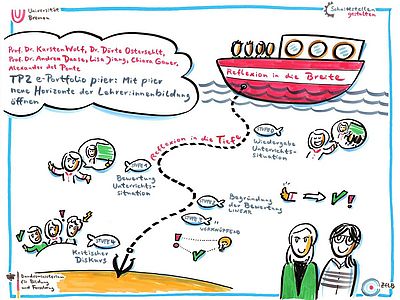 Universität
Bremen
Schnittstellen
gestalten
Prof. Dr. Karsten Wolf, Dr. Dörte Ostersehlt,
Prof. Dr. Andrea Daase, Lisa Jiang, Chiara Gauer,
Alexander del Ponte
TP2 e-Portfolio p:ier: Mit p:ier
neue Horizonte der Lehrer:innenbildung
öffnen
Reflexion in die Breite
Reflexion in die Tiefe
STUFE 0
Wiedergabe
Unterrichts-
situation
STUFE 1
Bewertung
Unterrichts-
situation
STUFE 2
Begründung
der Bewertung
LINEAR
STUFE 3
VERKNÜPFEND
STUFE 4
Kritischer
Diskurs
Bundesministerium
für Bildung
und Forschung